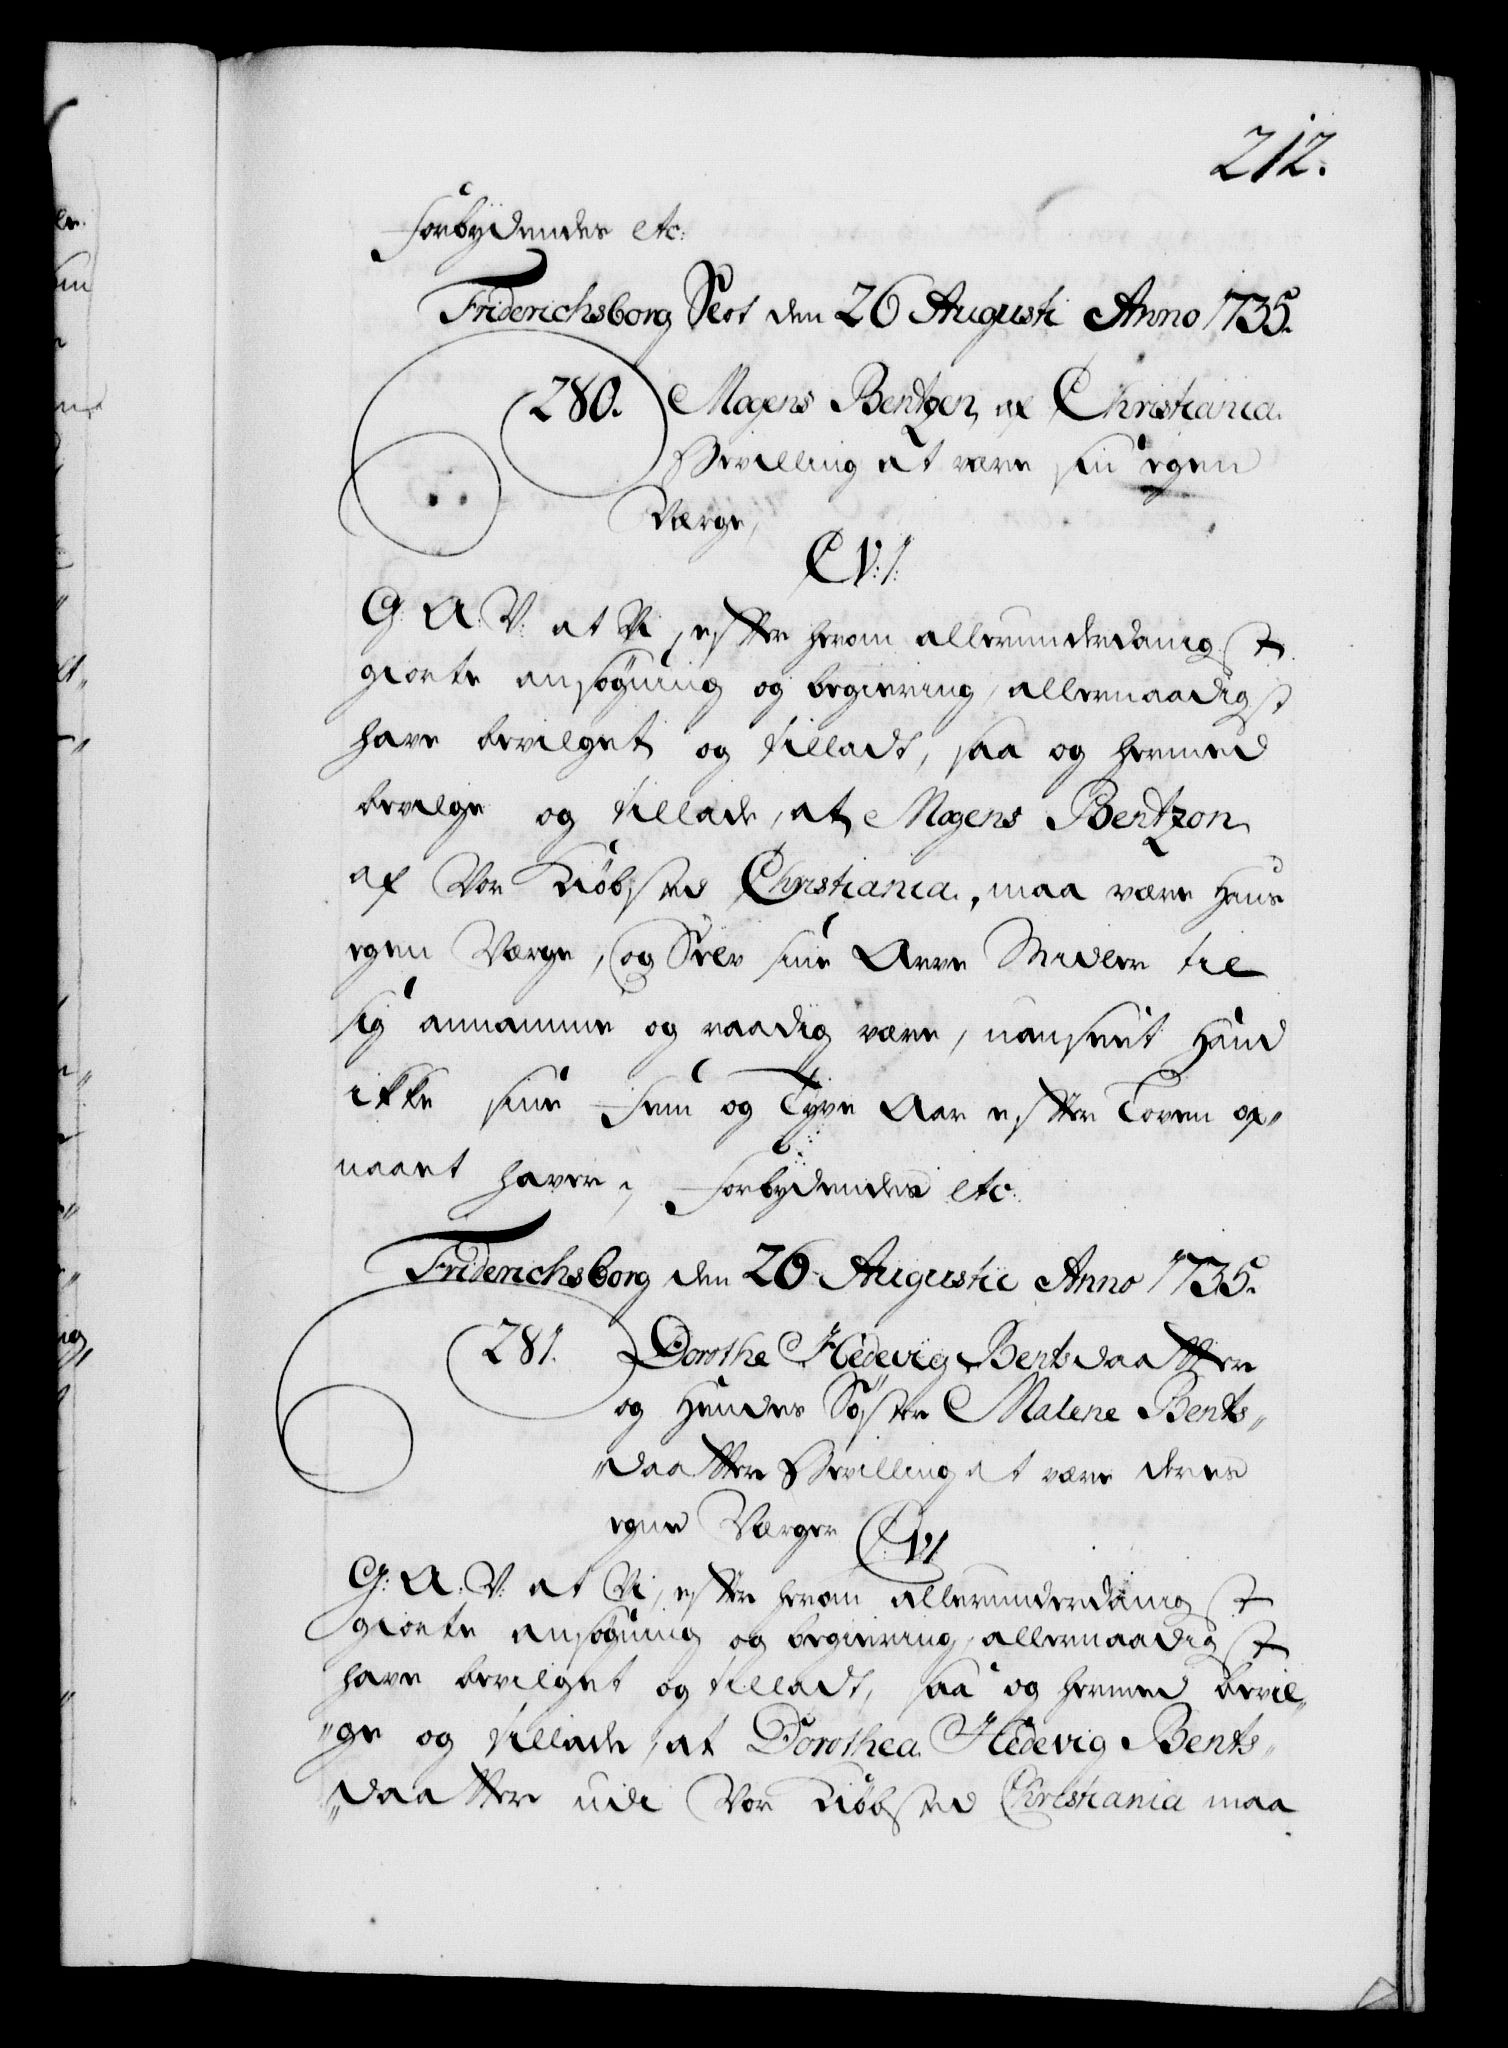 212.
Forbydendes etc:
Friderichsborg Slot den 26 Augusti Anno 1735.
280. Mogens Bentzen af Christiania.
Bevilling at være sin egen
Værge,
C V: I:
G: A: V: at Vi, efter herom allerunderdanigst
giorte ansøgning og begiering, allernaadigst
have bevilget og tilladt, saa og hermed
bevilge og tillade, at Mogens Bentzon
af Vor Kiøbsted Christiania, maa være Hans
egen Værge, og Selv sine Arve Midler til
sig annamme og raadig være, uanseet Hand
ikke sine Fem og Tyve Aar efter Loven op„
naaet haver, Forbydendes etc:
Friderichsborg den 26 Augustii Anno 1735.
281. Dorothe Hedevig Bentsdaatter
og Hendes Søster Malene Bents„
„daatter Bevilling at være deres
egne Værger C V I
G: A: V: at Vi, efter herom allerunderdanigst
giorte ansøgning og begiering, allernaadigst
have bevilget og tilladt, saa og hermed bevil„
„ge og tillade, at Dorothea Hedevig Bents„
„daatter udi Vor Kiøbsted Christiania maa